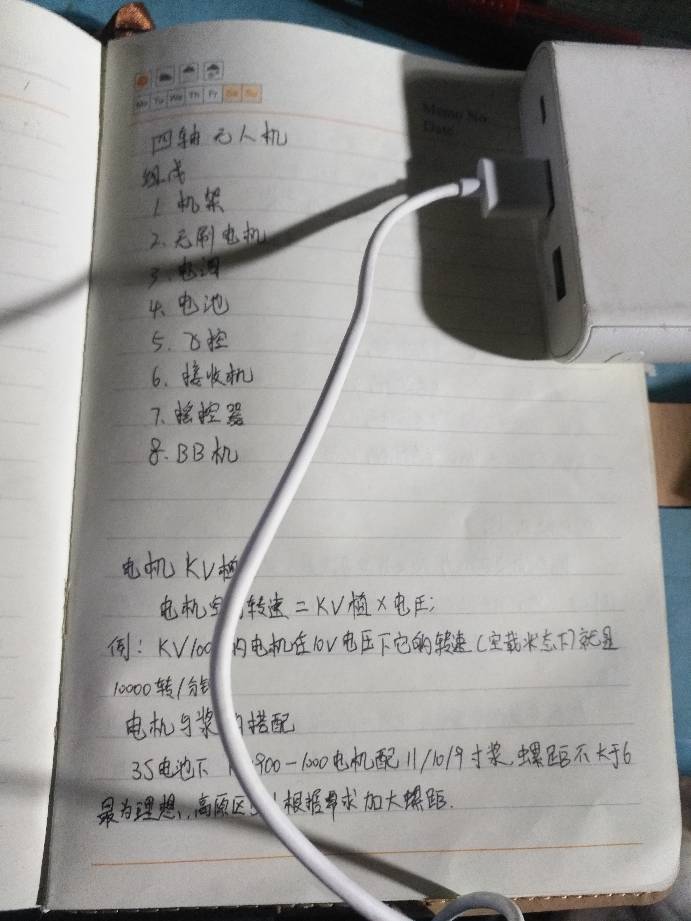 Mo Tu We Th Fr Sa Su
Memo No.
Date
四轴无人机
组成
1. 机架
2. 无刷电机
3. 电调
4. 电池
5. 飞控
6. 接收机
7. 摇控器
8. BB机
电机KV值
电机 转速=KV值×电压;
例: KV100 的电机在10V电压下它的转速(空载状态下)就是
10000转/分钟
电机与桨 搭配
3S电池下 900-1000电机配11/10/9寸桨,螺距不大于6
最为理想,高原区 根据 求加大螺距.